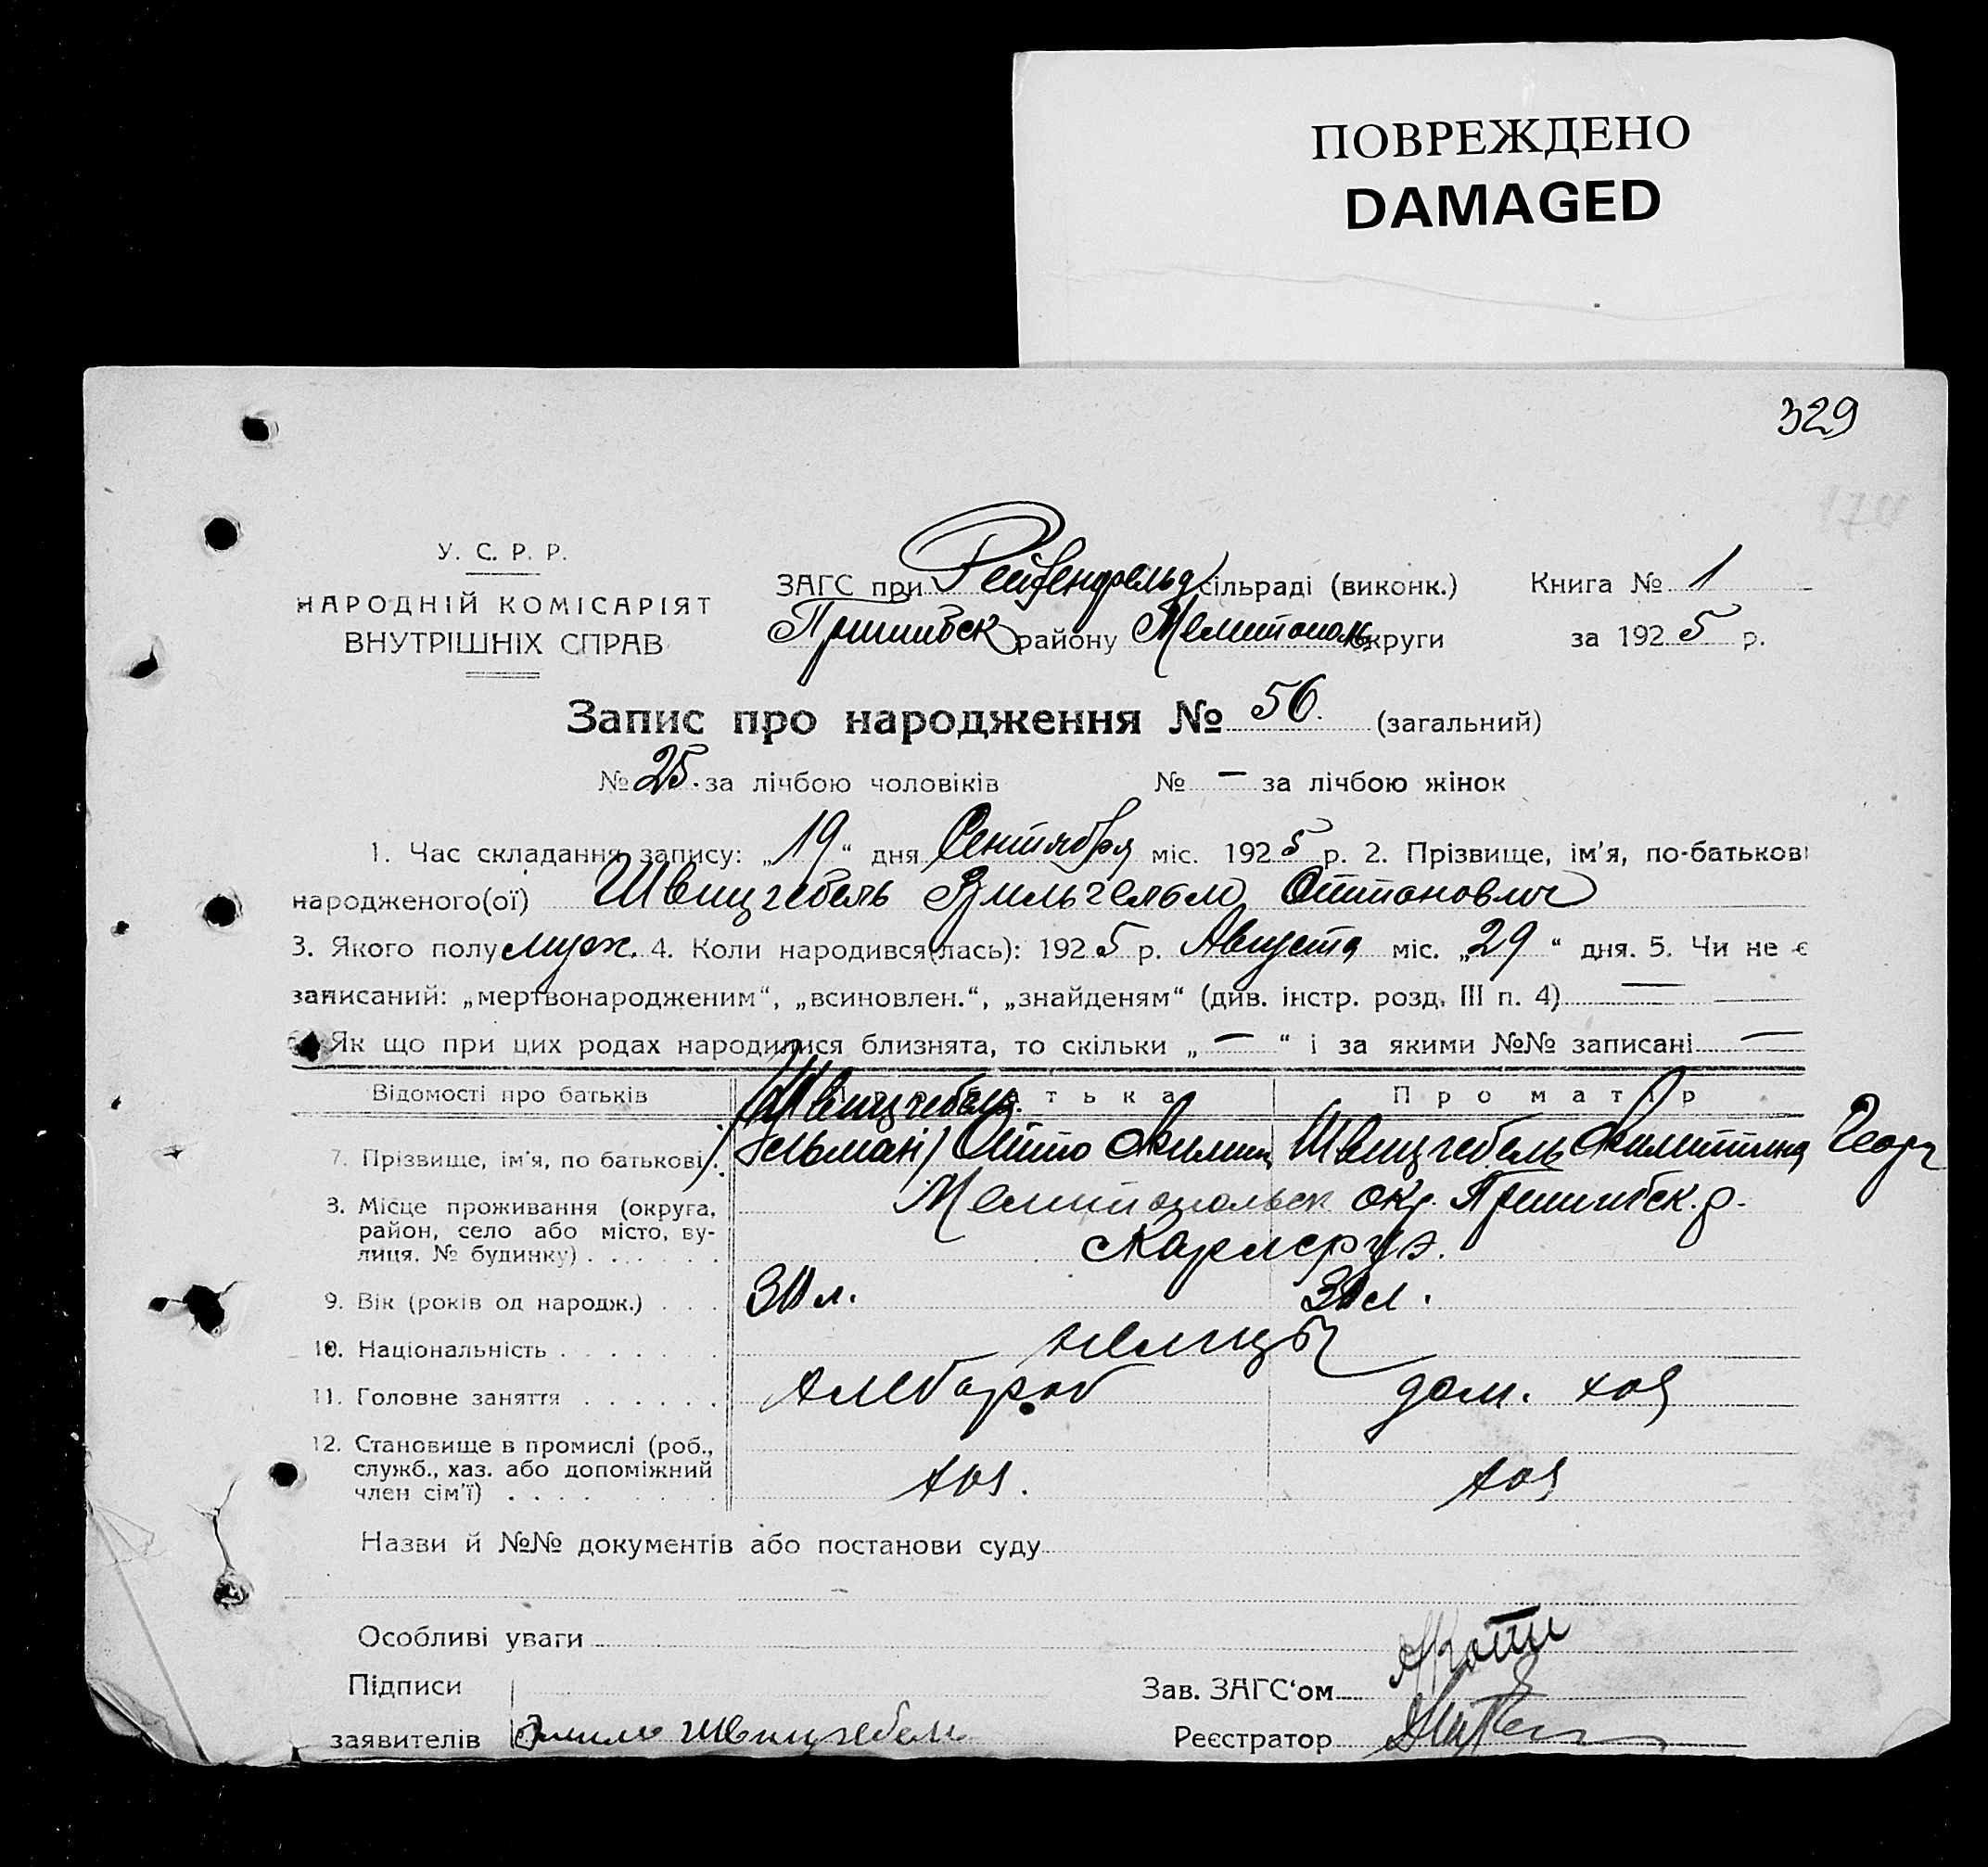 ПОВРЕЖДЕНО
DAMAGED
329
У. С. Р. Р.
НАРОДНІЙ КОМІСАРІЯТ
ВНУТРІШНІХ СПРАВ
ЗАГС при Рейхенфельд сільраді (виконк.) Книга № 1
Пришибск району Мелитополь округи за 1925 р.
Запис про народження № 56. (загальний)
№ 25. за лічбою чоловіків № — за лічбою жінок
1. Час складання запису: „19“ дня Сентября міс. 1925 р. 2. Прізвище, ім'я, по-батькові
народженого(ої) Швицгебель Вильгельм Оттонович
3. Якого полу муж. 4. Коли народився(лась): 1925 р. Августа міс. „29“ дня. 5. Чи не є
записаний: „мертвонародженим“, „всиновлен.“, „знайденям“ (див. інстр. розд. III п. 4) —
Як що при цих родах народилися близнята, то скільки „—“ і за якими №№ записані —
Відомості про батьків Про батька Про матір
Швицгебель
7. Прізвище, ім'я, по батькові Гельман) Отто Швицгебель Георг
8. Місце проживання (округа, Мелитопольск окр. Пришибск. р.
район, село або місто, ву-
лиця. № будинку) Карлсруэ.
9. Вік (років од народж.) л. л.
10. Національність немцы
11. Головне заняття хлебороб дом. хоз
12. Становище в промислі (роб.,
служб., хаз. або допоміжний хоз. хоз
член сім'ї)
Назви й №№ документів або постанови суду
Особливі уваги
Підписи Зав. ЗАГС‘ом
заявителів Швицгебель Реєстратор